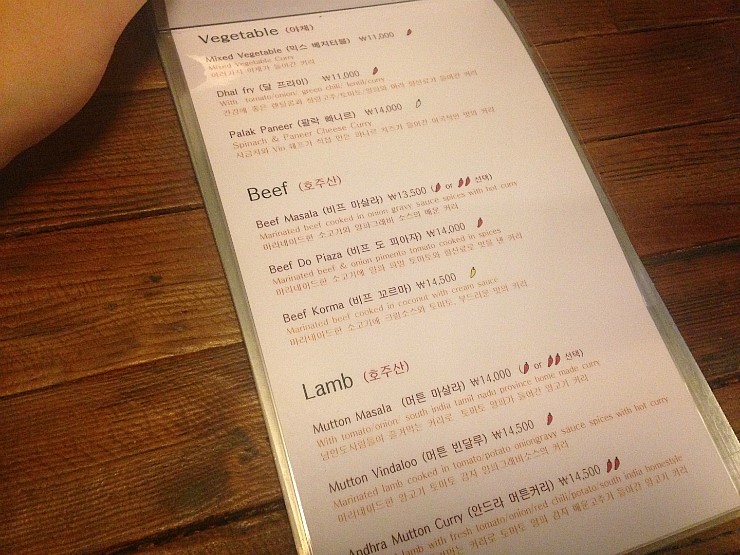 Vegetable (야채)
Mixed Vegetable (믹스 베지터블) ₩11,000
Mixed Vegetable Curry
여러가지 야채가 들어간 커리
Dhal fry (달 프라이) ₩11,000
With tomato/onion/ green chili/ lentil/curry
Palak Paneer (팔락 빠니르) ₩14,000
Spinach & Paneer Cheese Curry
Beef (호주산)
Beef Masala (비프 마살라) ₩13,500 ( or 선택)
Marinated beef cooked in onion gravy sauce spices with hot curry
마리네이드한 소고기와 양파그레비 소스의 매운 커리
Beef Do Piaza (비프 도 피아자) ₩14,000
Marinated beef & onion pimento tomato cooked in spices
마리네이드한 소고기에 양파 피망 토마토와 향신료로 맛을 낸 커리
Beef Korma (비프 꼬르마) ₩14,500
Marinated beef cooked in coconut with cream sauce
마리네이드한 소고기에 크림소스와 토마토, 부드러운 맛의 커리
Lamb (호주산)
Mutton Masala (머튼 마살라) ₩14,000 ( or 선택)
With tomato/onion/ south india tamil nadu province home made curry
남인도사람들이 즐겨먹는 커리로 토마토 양파가 들어간 양고기 커리
Mutton Vindaloo (머튼 빈달루) ₩14,500
Marinated lamb cooked in tomato/potato oniongravy sauce spices with hot curry
마리네이드한 양고기 토마토 감자 양파그레비소스의 커리
Andhra Mutton Curry (안드라 머튼커리) ₩14,500
lamb with fresh tomato/onion/red chili/potato/south india homestyle
커리로 토마토 양파 감자 매운고추가 들어간 양고기 커리